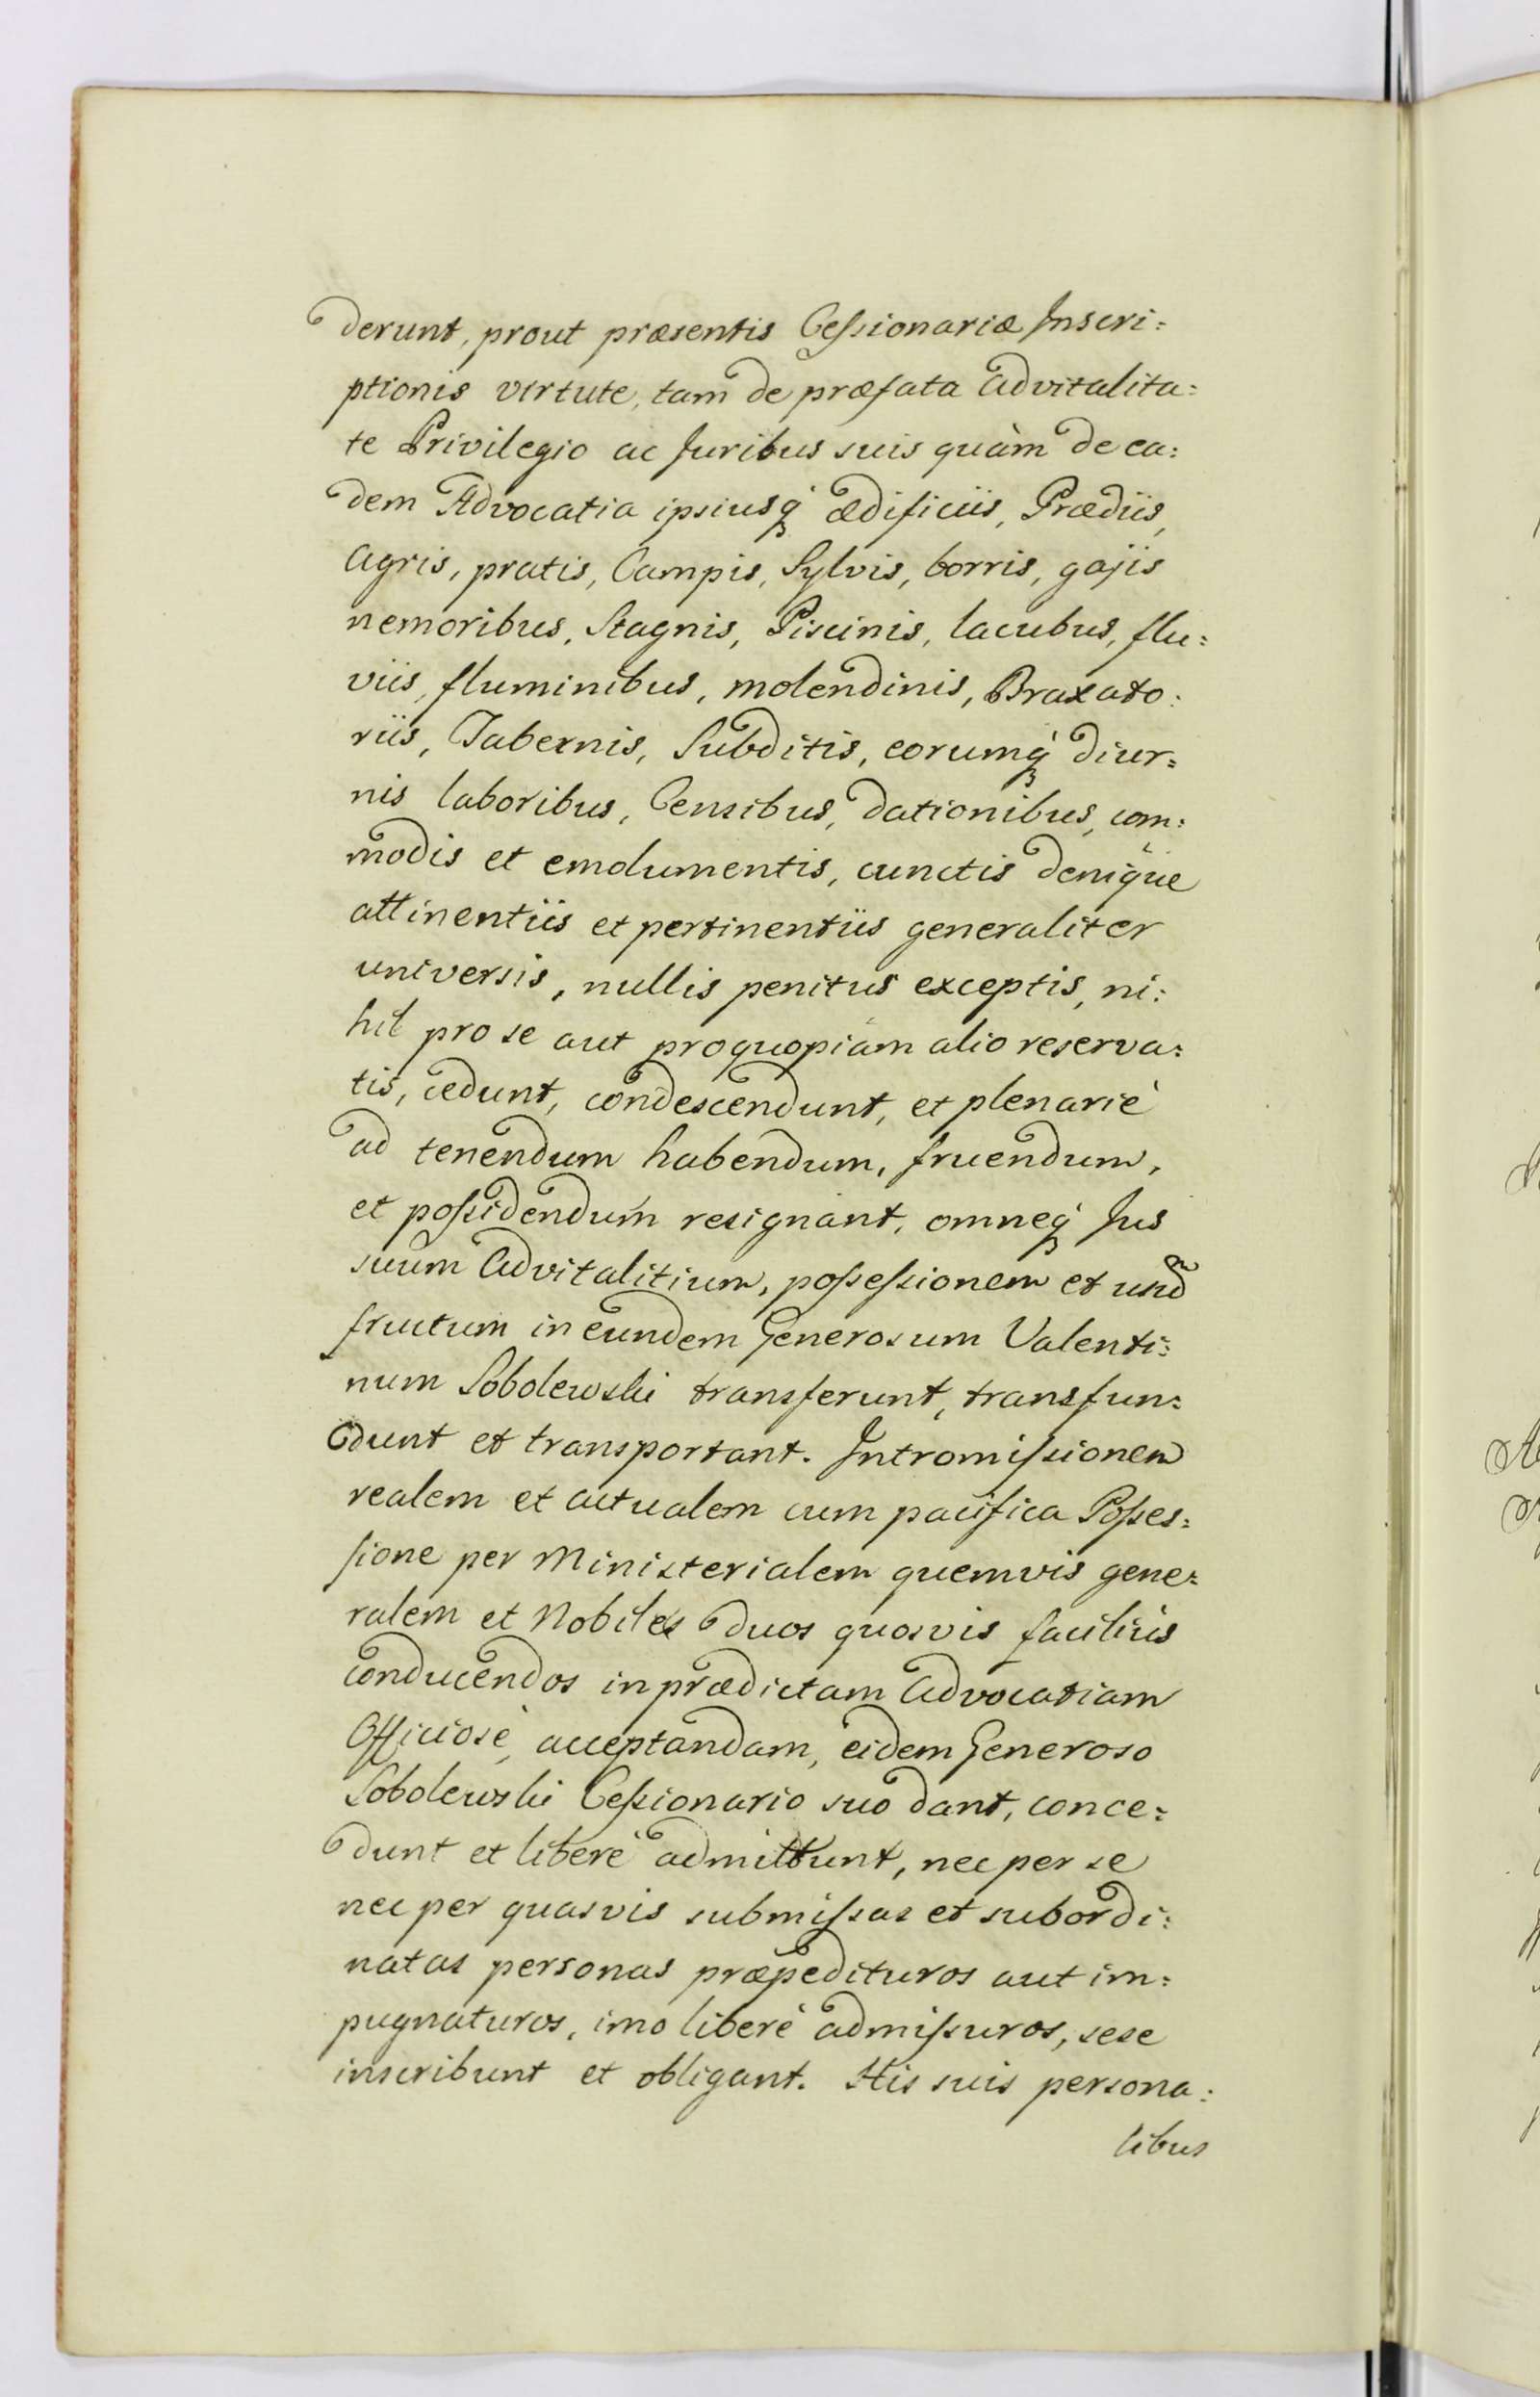 derunt, prout præsentis Ceſsionariæ Inscri:
ptionis virtute, tam de præfata Advitalita:
te Privilegio ac Juribus suis quàm de ea:
dem Advocatia ipsiusq́ ædificiis, Prædiis,
Agris, pratis, Campis, Sylvis, borris, gajis
nemoribus, Stagnis, Piscinis, lacubus, flu:
viis, fluminibus, molendinis, Braxato:
riis, Tabernis, Subditis, eorumq́ diur:
nis laboribus, Censibus, dationibus, com:
modis et emolumentis, cunctis denique
attinentiis et pertinentiis generaliter
universis, nullis penitus exceptis, ni:
hil pro se aut proquopiam alio reserva:
tis, cedunt, condescendunt, et plenariè
ad tenendum habendum, fruendum,
et poſsidendum resignant, omneq́ Jus
suum Advitalitium, poſseſsionem et
fructum in eundem Generosum Valenti:
num Sobolewski transferunt, transfun:
dunt et transportant. Intromiſsionem
realem et actualem cum pacifica Poſses:
sione per Ministerialem quemvis gene:
ralem et Nobiles duos quosvis faciliùs
conducendos in prædictam Advocatiam
Officiosè acceptandam, eidem Generoso
Sobolewski Ceſsionario suo dant, conce:
dunt et liberè admittunt, nec per se
nec per quasvis submiſsas et subordi:
natas personas præpedituros aut im:
pugnaturos, imo liberè admiſsuros, sese
inscribunt et obligant. His suis persona:
libus